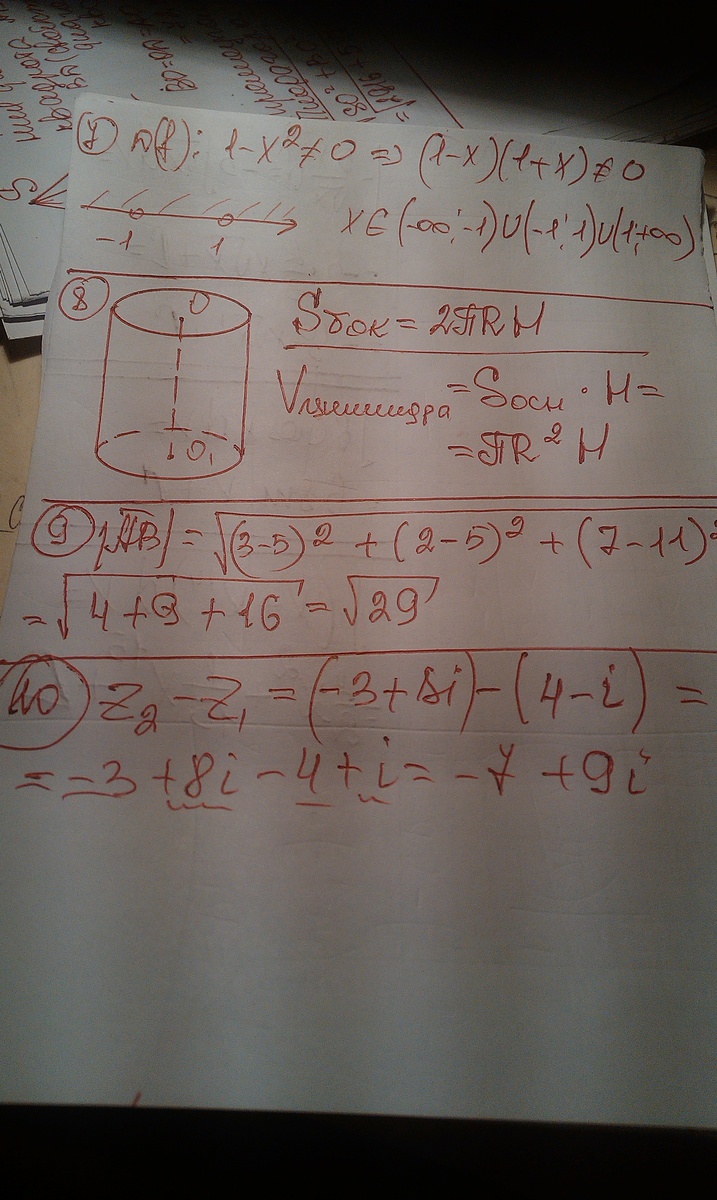 7 D(f): 1-x²≠0 => (1-x)(1+x)≠0
-1 1 x∈(-∞;-1)∪(-1;1)∪(1;+∞)
8 O Sбок = 2πRH
Vцилиндра = Sосн · H =
O₁ = πR²H
9 |AB| = √(3-5)² + (2-5)² + (7-11)²
= √4+9+16 = √29
10 Z₂ - Z₁ = (-3+8i)-(4-i) =
= -3 +8i -4 + i = -7 +9i